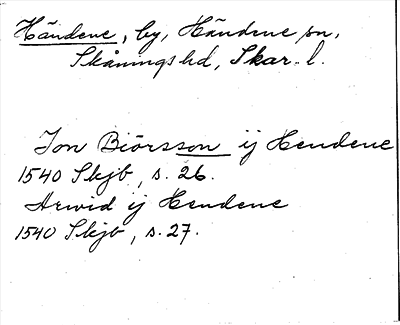 Händene, by, Händene sn,
Skånings hd, Skar. l.
Jon Biörsson ij Hendene
1540 Skjb, s. 26.
Arwid ij Hendene
1540 Skjb, s. 27.